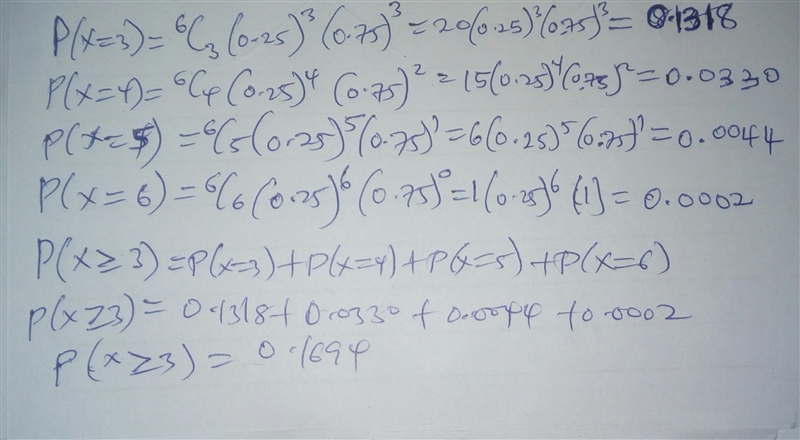 P(x=3) = ⁶C₃(0.25)³(0.75)³ = 20(0.25)³(0.75)³ = 0.1318
P(x=4) = ⁶C₄(0.25)⁴ (0.75)² = 15(0.25)⁴(0.75)² = 0.0330
P(x=5) = ⁶C₅(0.25)⁵(0.75)¹ = 6(0.25)⁵(0.75)¹ = 0.0044
P(x=6) = ⁶C₆(0.25)⁶(0.75)⁰ = 1(0.25)⁶(1) = 0.0002
P(x≥3) = P(x=3)+P(x=4)+P(x=5)+P(x=6)
P(x≥3) = 0.1318 + 0.0330 + 0.0044 + 0.0002
P(x≥3) = 0.1694